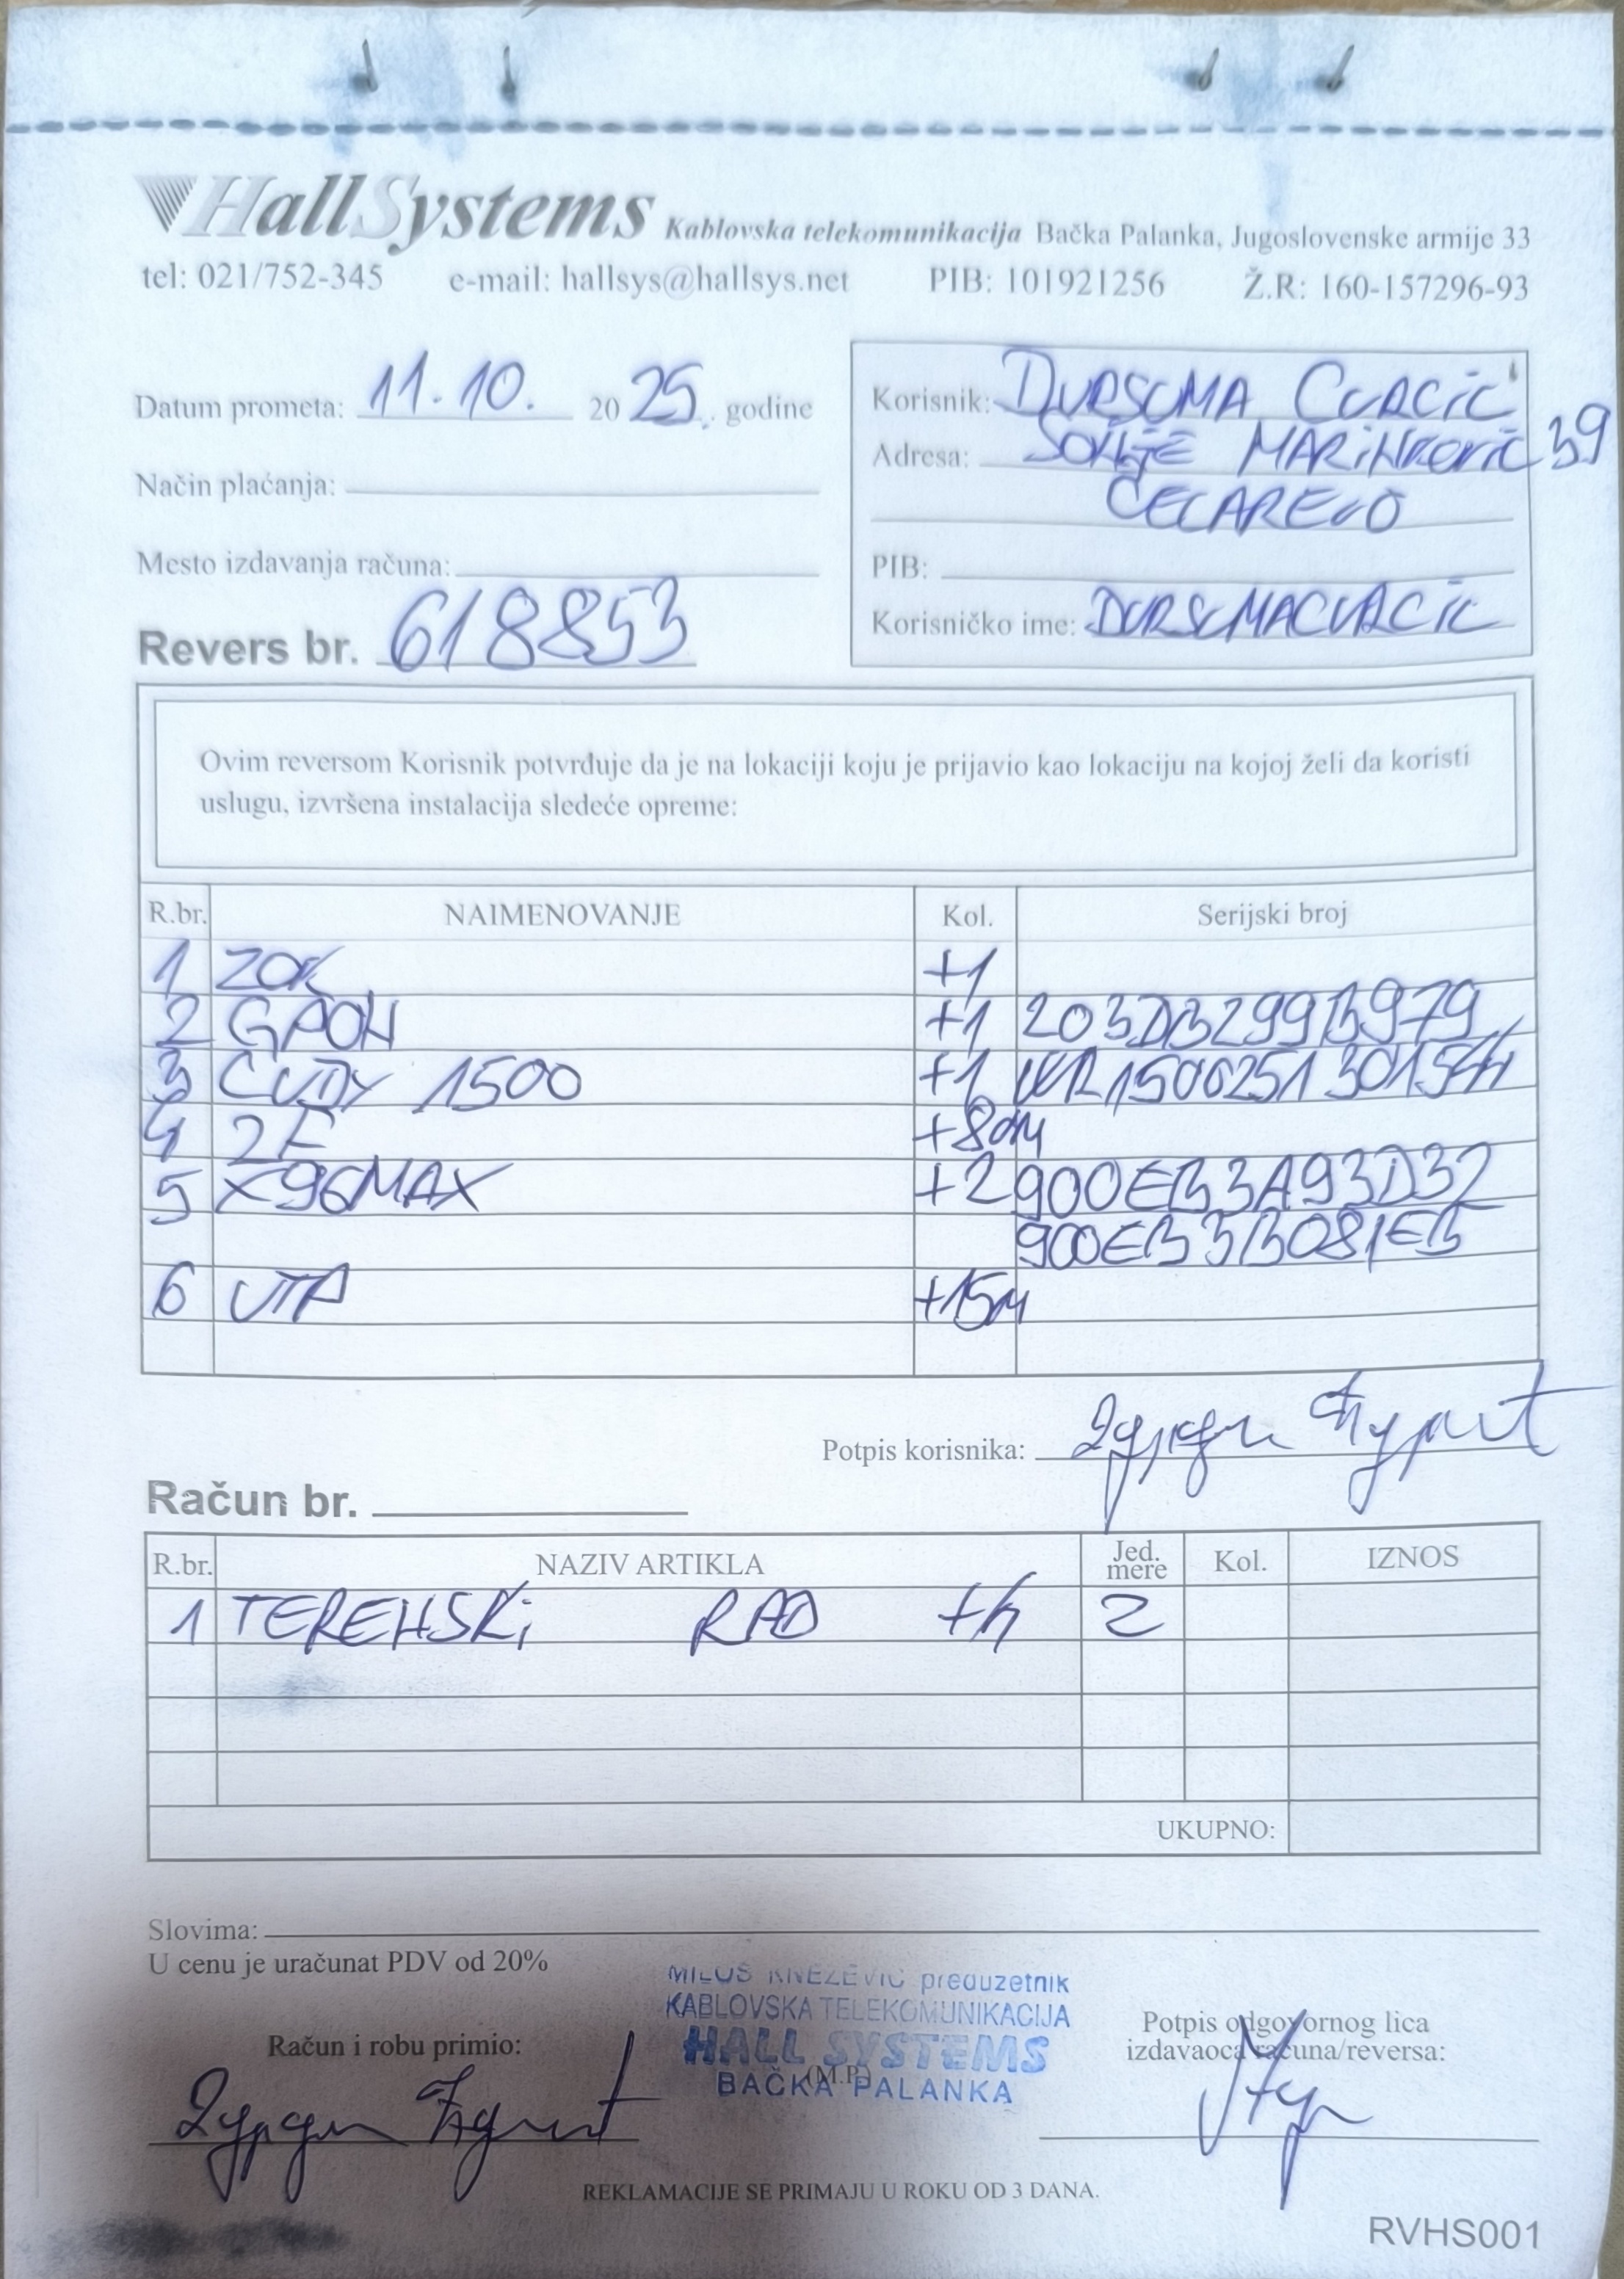 HallSystems Kablovska telekomunikacija Bačka Palanka, Jugoslovenske armije 33
tel: 021/752-345 e-mail: hallsys@hallsys.net PIB: 101921256 Ž.R: 160-157296-93
Datum prometa: 11.10. 2025. godine
Način plaćanja:
Mesto izdavanja računa:
Revers br. 618853
Korisnik: ĆURČIĆ
Adresa: SONJE MARINKOVIĆ 39
ČELAREVO
PIB:
Korisničko ime:
Ovim reversom Korisnik potvrđuje da je na lokaciji koju je prijavio kao lokaciju na kojoj želi da koristi
uslugu, izvršena instalacija sledeće opreme:
R.br. NAIMENOVANJE Kol. Serijski broj
1 ZOK +1
2 GPON +1 203DB299B979
3 CUDY 1500 +1
4 2F +80M
5 X96MAX +2 900EB3A93D32
900EB3B081EB
6 UTP +15M
Potpis korisnika:
Račun br.
R.br. NAZIV ARTIKLA Jed. mere Kol. IZNOS
1 TERENSKI RAD +h 2
UKUPNO:
Slovima:
U cenu je uračunat PDV od 20%
MILOŠ KNEŽEVIĆ preduzetnik
KABLOVSKA TELEKOMUNIKACIJA
HALL SYSTEMS
BAČKA PALANKA
(M.P.)
Račun i robu primio:
Potpis odgovornog lica
izdavaoca računa/reversa:
REKLAMACIJE SE PRIMAJU U ROKU OD 3 DANA.
RVHS001